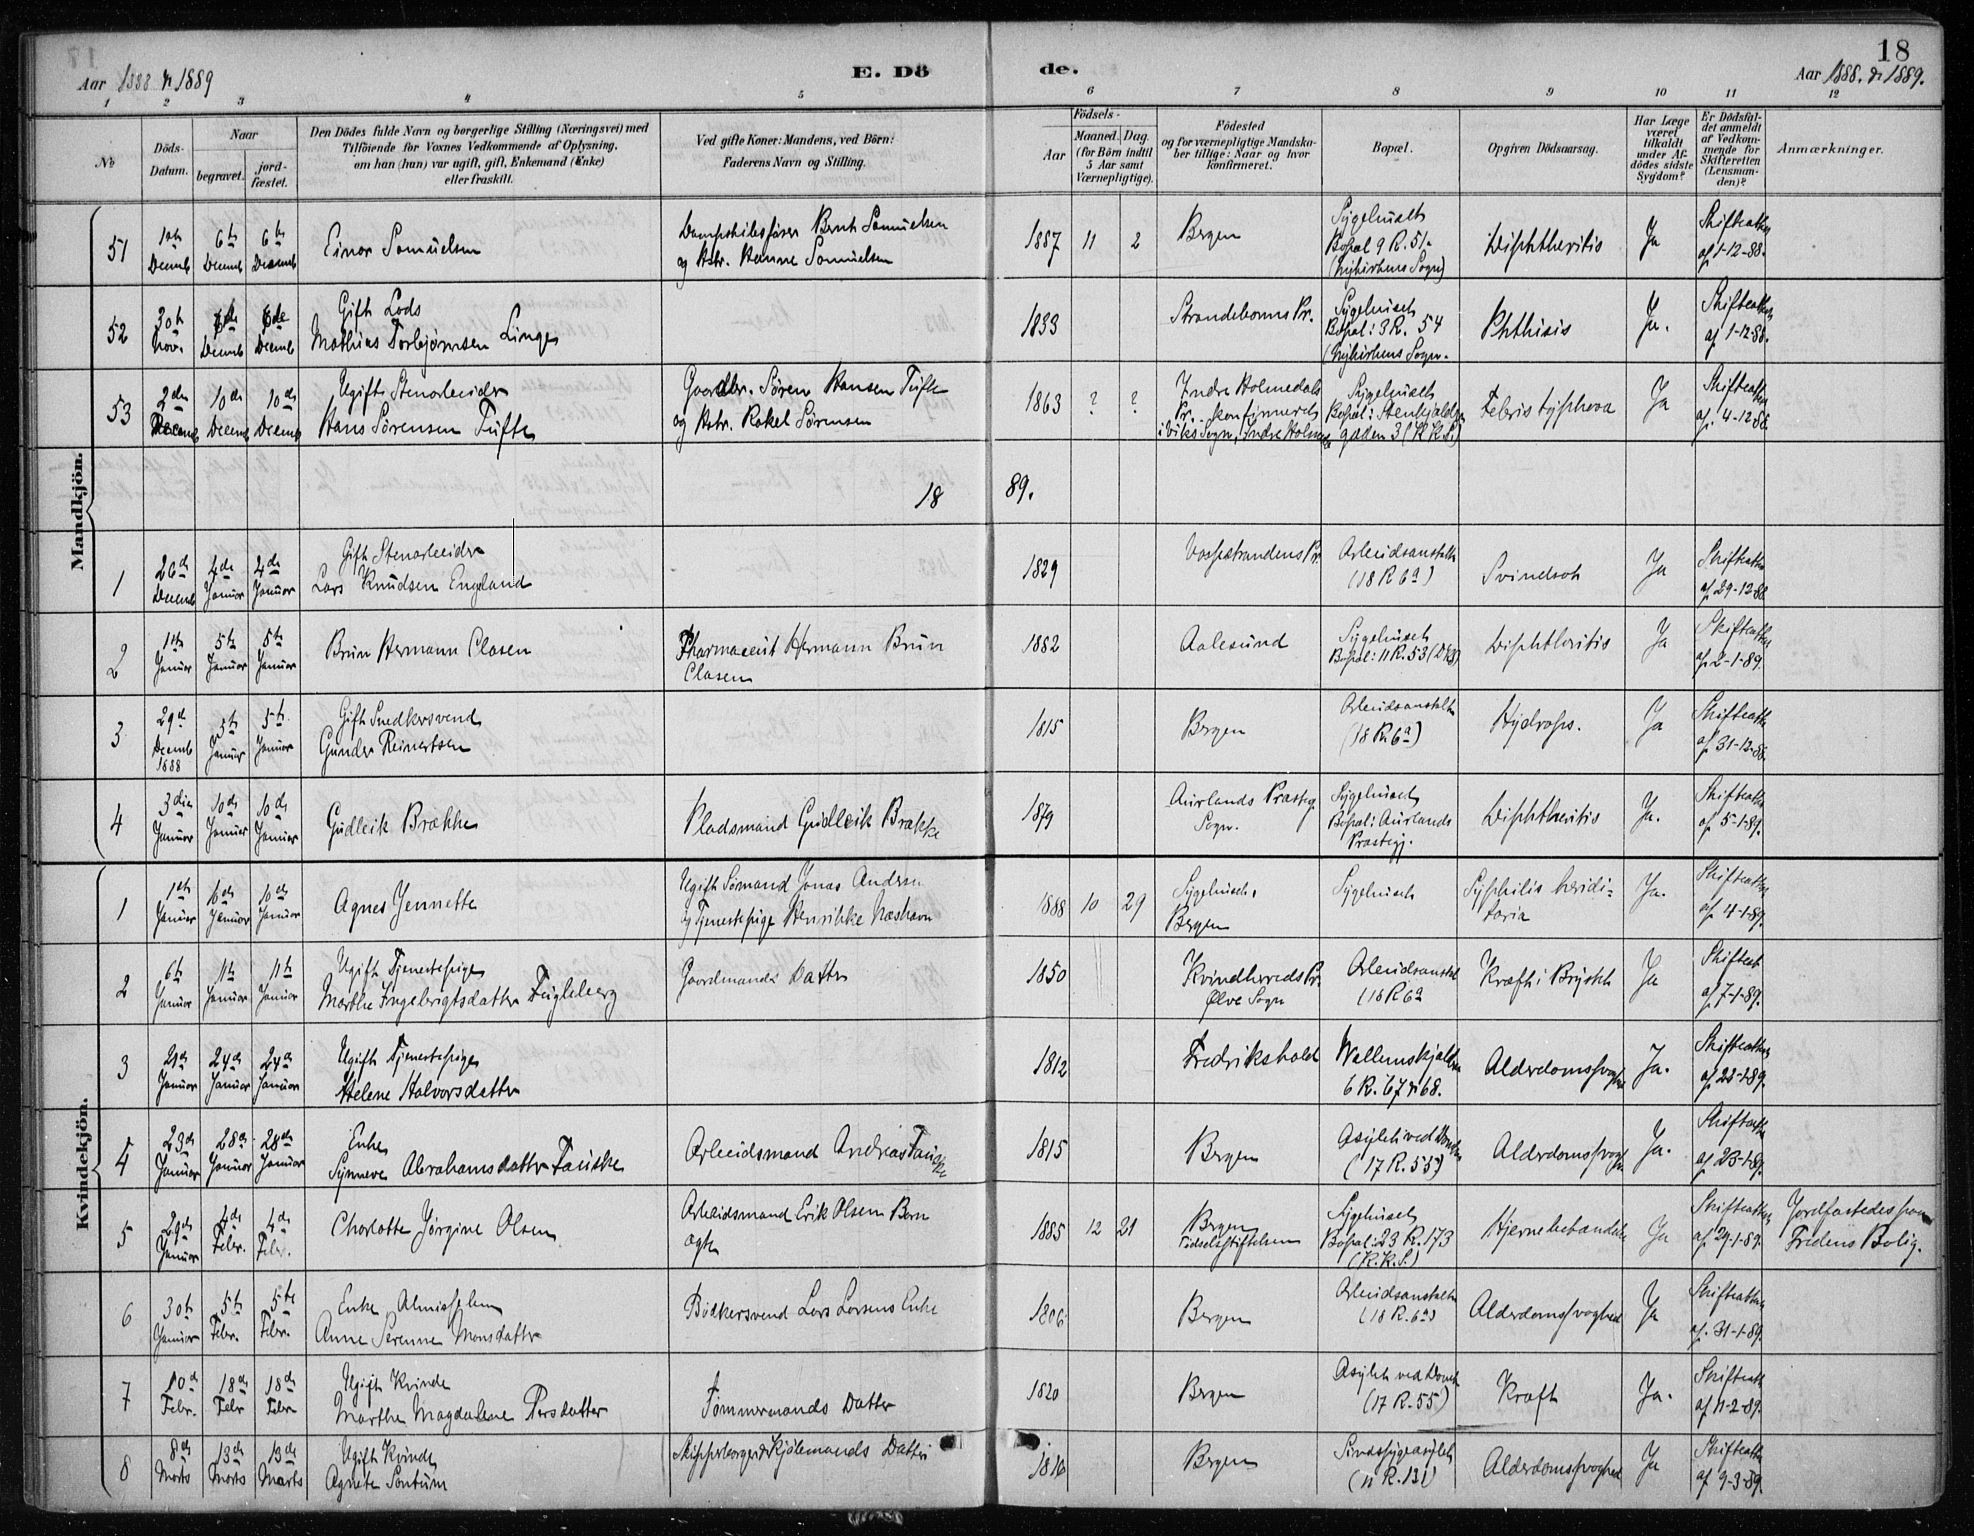 18
Aar 1888 & 1889
E. Dö
de.
Aar 1888. & 1889.
1 2 3 4 5 6 7 8 9 10 11 12
No
Döds-
Datum.
Naar
begravet.
jord-
fæstet.
Den Dödes fulde Navn og borgerlige Stilling (Næringsvei) med
Tilföiende for Voxnes Vedkommende af Oplysning,
om han (hun) var ugift, gift, Enkemand (Enke)
eller fraskilt.
Ved gifte Koner: Mandens, ved Börn:
Faderens Navn og Stilling.
Födsels-
Aar
Maaned. Dag.
(for Börn indtil
5 Aar samt
Værnepligtige).
Födested
og for værnepligtige Mandska-
ber tillige: Naar og hvor
konfirmeret.
Bopæl.
Opgiven Dödsaarsag.
Har Læge
været
tilkaldt
under Af-
dödes sidste
Sygdom?
Er Dödsfal-
det anmeldt
af Vedkom-
mende for
Skifteretten
(Lensman-
den)?
Anmærkninger.
Mandkjön.
51
1ste Decemb
6te Decemb
6te Decemb
Einar Samuelsen
Dampskibsfører Bernt Samuelsen
og Hstr. Hanne Samuelsen
1887 11 2
Bergen
Sygehuset
Bopæl 9 R. 51.
(Nykirkens Sogn)
Diphtheritis
Ja
Skifteatt
af 1-12-88.
52
30te Nov.
Decemb
Decemb
Gift Lods
Mathias Torbjørnsen Linge
1833
Strandebarms Pr.
Sygehuset
Bopæl: 3 R. 54
(Nykirkens Sogn.
Phthisis
Ja.
Skifteatt
af 1-12-88.
53
2den Decemb
10de Decemb
10de Decemb
Ugift Stenarbeider
Hans Sørensen Tufte
Gaardbr. Søren Hansen Tufte
og Hstr. Rakel Sørensen
1863 ? ?
Indre Holmedals
Pr. konfirmeret
i Viks Sogn, Indre Holmed
Sygehuset
Bopæl: Stenkjelder
gaden 3 (K. K. S.)
Febris typhoea
Ja
Skifteatt
af 4-12-88.
18
89.
1
26de Decemb
4de Januar
4de Januar
Gift Stenarbeider
Lars Knudsen England
1829
Vossestrandens Pr.
Arbeidsanstalten
(18 R 6a)
Svindsot
Ja
Skifteatt
af 29-12-88.
2
1ste Januar
5te Januar
5te Januar
Brun Hermann Clasen
Pharmaceut Hermann Brun
Clasen
1882
Aalesund
Sygehuset
Bopæl: 11 R. 53 (D.K.S)
Diphtheritis
Ja
Skifteatt
af 2-1-89.
3
29de Decemb 1888
5te Januar
5te Januar
Gift Snedkersvend
Gunder Reinertsen
1815
Bergen
Arbeidsanstalten
(18 R. 6a)
Hydrops.
Ja
Skifteatt
af 31-12-88.
4
3die Januar
10de Januar
10de Januar
Gudleik Brække
Pladsmand Gudleik Brække
1879
Aurlands Præsteg.
Sogn.
Sygehuset
Bopæl: Aurlands
Præstegj.
Diphtheritis
Ja.
Skifteatt
af 5-1-89.
Kvindekjön.
1
1ste Januar
10de Januar
10de Januar
Agnes Jennette
Ugift Sømand Jonas Andersen
og Tjenestepige Henrikke Næshavn
1888 10 29
Sygehuset,
Bergen
Sygehuset
Syphilis heridi-
taria
Ja.
Skifteatt
af 4-1-89.
2
6te Januar
11te Januar
11te Januar
Ugift Tjenestepige
Marthe Ingebrigtsdatter Fugleberg
Gaardmands Datter
1850
Kvindherreds Pr.
Ølve Sogn
Arbeidsanstalt
(18 R 6a
Kræft i Brystet
Ja
Skifteat
af 7-1-89.
3
21de Januar
24de Januar
24de Januar
Ugift Tjenestepige
Helene Halvorsdatter
1812
Fredrikshald
6 R. 67 & 68.
Alderdomssvaghed
Ja.
Skifteatt
af 22-1-89.
4
23de Januar
28de Januar
28de Januar
Enke
Synneve Abrahamsdatter Fauske
Arbeidsmand Andreas Fauske
1815
Bergen
Asylet ved Domk
(17 R. 55)
Alderdomssvaghed
Ja.
Skifteatt
af 23-1-89.
5
29de Januar
4de Febr.
4de Febr.
Charlotte Jørgine Olsen
Arbeidsmand Erik Olsen Barn
Ægte
1885 12 21
Bergen
Fødselsstiftelsen
Sygehuset
Bopæl: 23 R. 173
(K. K. S.)
Hjernebetændelse
Ja
Skifteatt
af 29-1-89.
Jordfæstedes paa
Fredens Bolig.
6
30te Januar
5te Febr.
5te Febr.
Enke Almisselem
Anne Serenne Monsdatter
Bødkersvend Lars Larsens Enke
1806
Bergen
Arbeidsanstalten
(18 R. 6a)
Alderdomssvaghed
Ja
Skifteatt
af. 31-1-89.
7
10de Febr.
18de Febr
18de Febr
Ugift Kvinde
Marthe Magdalene Persdatter
Tømmermands Datter
1820
Bergen
Asylet ved Domk
(17 R. 55)
Kræft
Ja.
Skifteatt
af 11-2-89.
8
8de Marts
13de Marts
13de Marts
Ugift Kvinde
Agnete Sontum
Skipperborger & Kjølemands Datter
1816
Bergen
Sindssygeasylet
(11 R. 131)
Alderdomssvaghed
Ja
Skifteatt
af 9-3-89.